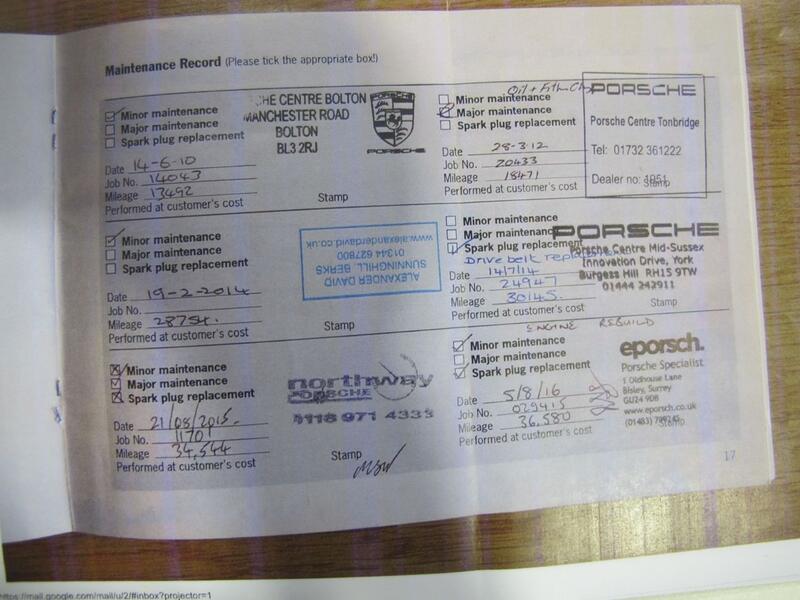 Maintenance Record (Please tick the appropriate box!)
Minor maintenance
Major maintenance
Spark plug replacement
Date 14-6-10
Job No. 14043
Mileage 13492
Performed at customer's cost
Stamp
HE CENTRE BOLTON
MANCHESTER ROAD
BOLTON
BL3 2RJ
PORSCHE
Oil +
Minor maintenance
Major maintenance
Spark plug replacement
Date 28-3-12
Job No. 20433
Mileage 18471
Performed at customer's cost
PORSCHE
Porsche Centre Tonbridge
Tel: 01732 361222
Dealer no: 1951
Stamp
Minor maintenance
Major maintenance
Spark plug replacement
Date 19-2-2014
Job No.
Mileage 28754.
Performed at customer's cost
Stamp
ALEXANDER DAVID
SUNNINGHILL, BERKS
01344 627800
www.alexanderdavid.co.uk
Minor maintenance
Major maintenance
Spark plug replacement
Drive belt replacement
Date 14/7/14
Job No. 24947
Mileage 30145.
Performed at customer's cost
PORSCHE
Porsche Centre Mid-Sussex
Innovation Drive, York
Burgess Hill RH15 9TW
01444 242911
Stamp
Minor maintenance
Major maintenance
Spark plug replacement
Date 21/08/2015.
Job No. 11701
Mileage 34,544
Performed at customer's cost
Stamp
northway
PORSCHE
0118 971 4333
ENGINE REBUILD
Minor maintenance
Major maintenance
Spark plug replacement
Date 5/8/16
Job No. 029415
Mileage 36,580
Performed at customer's cost
eporsch.
Porsche Specialist
1 Oldhouse Lane
Bisley, Surrey
GU24 9DB
www.eporsch.co.uk
(01483)
Stamp
17
https://mail.google.com/mail/u/2/#inbox?projector=1